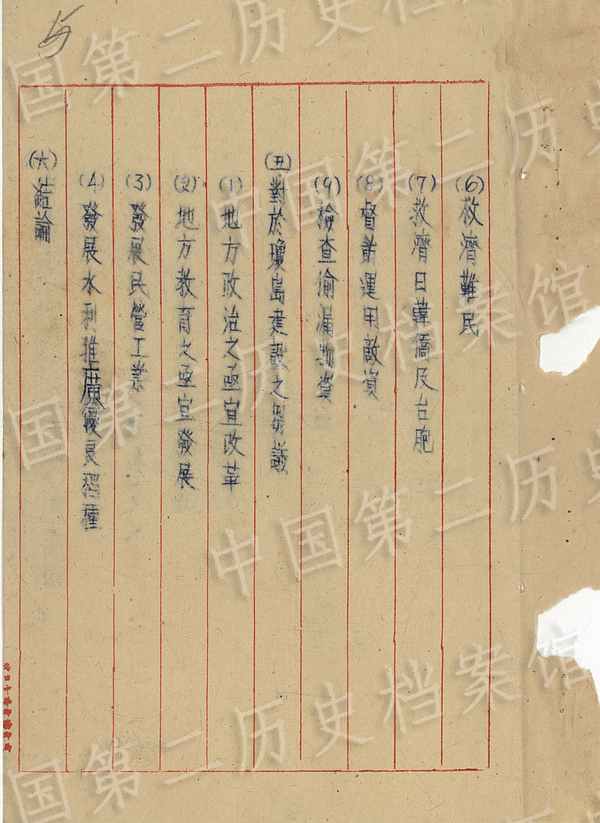 5
(6) 救濟難民
(7) 救濟日韓僑及台胞
(8) 督導運用敵資
(9) 檢查偷漏物資
(五) 對於瓊島建設之芻議
(1) 地方政治之亟宜改革
(2) 地方教育之亟宜發展
(3) 發展民營工業
(4) 發展水利推廣優良稻種
(六) 結論
中国第二历史档案馆